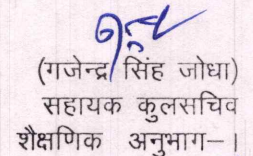 (गजेन्द्र सिंह जोधा)
सहायक कुलसचिव
शैक्षणिक अनुभाग–।